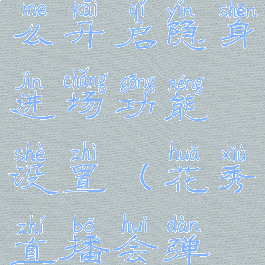 me kāi qǐ yǐn shēn
么开启隐身
jìn chǎng gōng néng
进场功能
shè zhì huā xiù
设置（花秀
zhí bō huì dàn
直播会弹